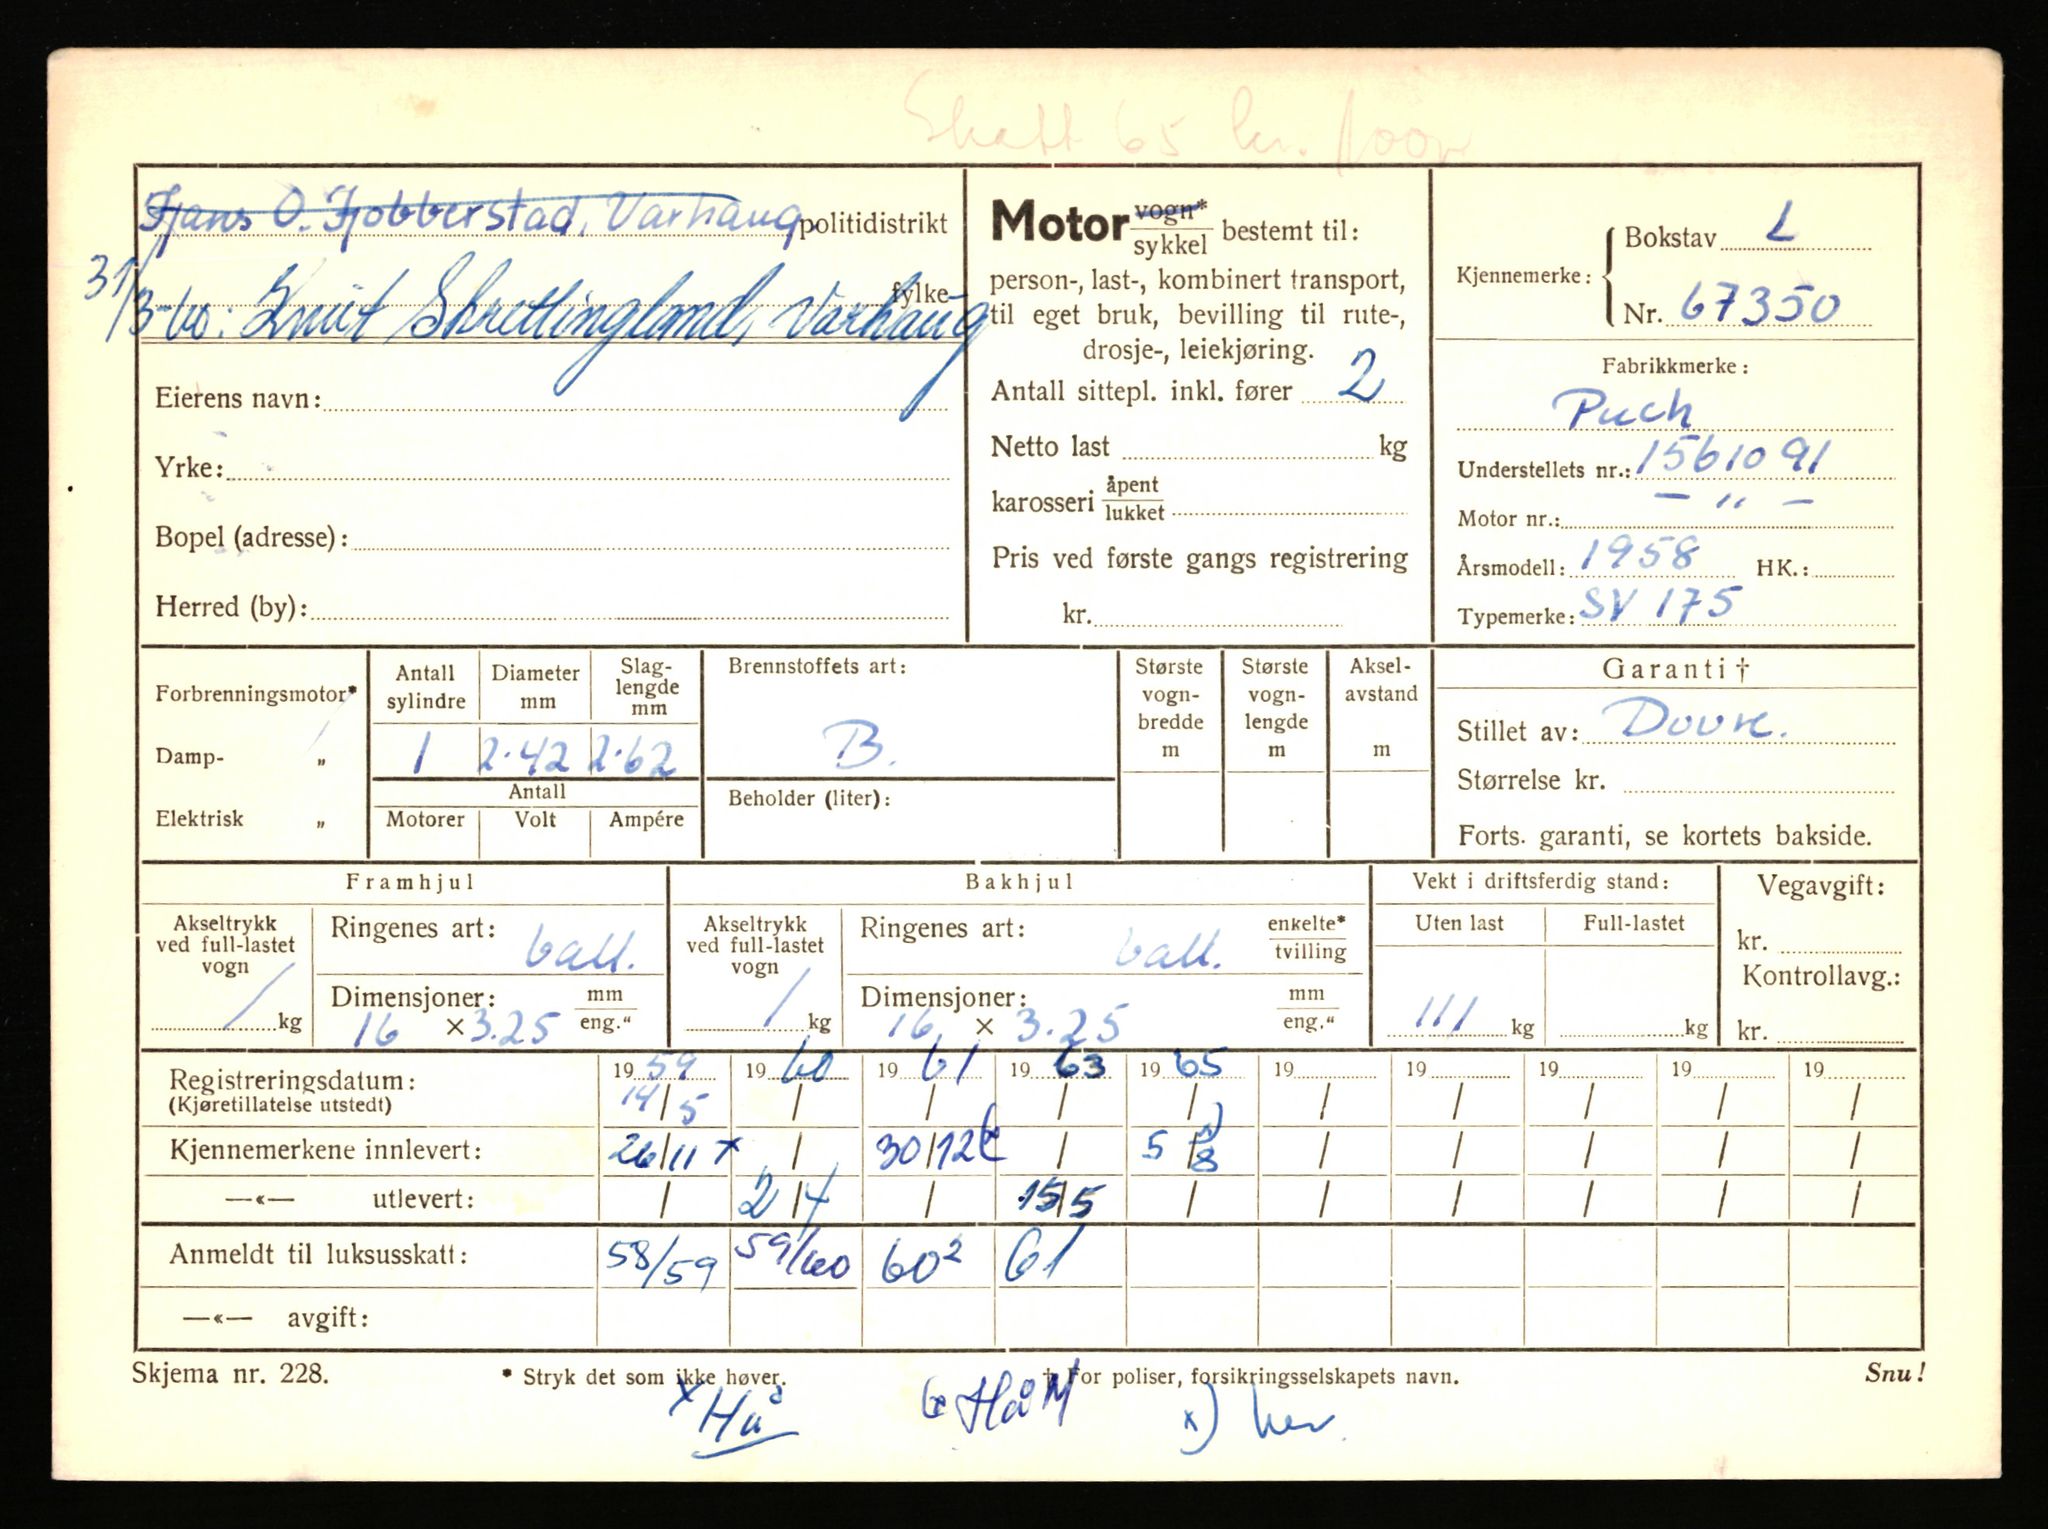 Skatt 65 kr.
Hans O. Hobberstad, Varhaug politidistrikt
31/3-60: Knut Skrettingland, Varhaug fylke
Eierens navn:
Yrke:
Bopel (adresse):
Herred (by):
Motor vogn* sykkel bestemt til:
person-, last-, kombinert transport,
til eget bruk, bevilling til rute-,
drosje-, leiekjøring.
Antall sittepl. inkl. fører 2
Netto last kg
karosseri åpent lukket
Pris ved første gangs registrering
kr.
Kjennemerke: Bokstav L
Nr. 67350
Fabrikkmerke:
Puch
Understellets nr.: 1561091
Motor nr.: — " —
Årsmodell: 1958 HK.:
Typemerke: SV 175
Forbrenningsmotor*
Damp- "
Elektrisk "
Antall sylindre
Diameter mm
Slag-lengde mm
1 2·42 2·62
Antall
Motorer Volt Ampére
Brennstoffets art:
B.
Beholder (liter):
Største vogn-bredde m
Største vogn-lengde m
Aksel-avstand m
Garanti †
Stillet av: Dovre.
Størrelse kr.
Forts. garanti, se kortets bakside.
Framhjul
Akseltrykk ved full-lastet vogn
/ kg
Ringenes art: ball.
Dimensjoner: mm eng."
16 × 3.25
Bakhjul
Akseltrykk ved full-lastet vogn
/ kg
Ringenes art: ball. enkelte* tvilling
Dimensjoner: mm eng."
16 × 3.25
Vekt i driftsferdig stand:
Uten last Full-lastet
111 kg kg
Vegavgift:
kr.
Kontrollavg.:
kr.
Registreringsdatum: 1959 1960 1961 1963 1965 19 19 19 19 19
(Kjøretillatelse utstedt) 14/5 / / / / / / / / /
Kjennemerkene innlevert: 26/11 x / 30/12 / 5/8 x) / / / / /
—«— utlevert: / 2/4 / 15/5 / / / / / /
Anmeldt til luksusskatt: 58/59 59/60 60² 61
—«— avgift:
Skjema nr. 228. * Stryk det som ikke høver. † For poliser, forsikringsselskapets navn. Snu!
x Hå HåM x) her.